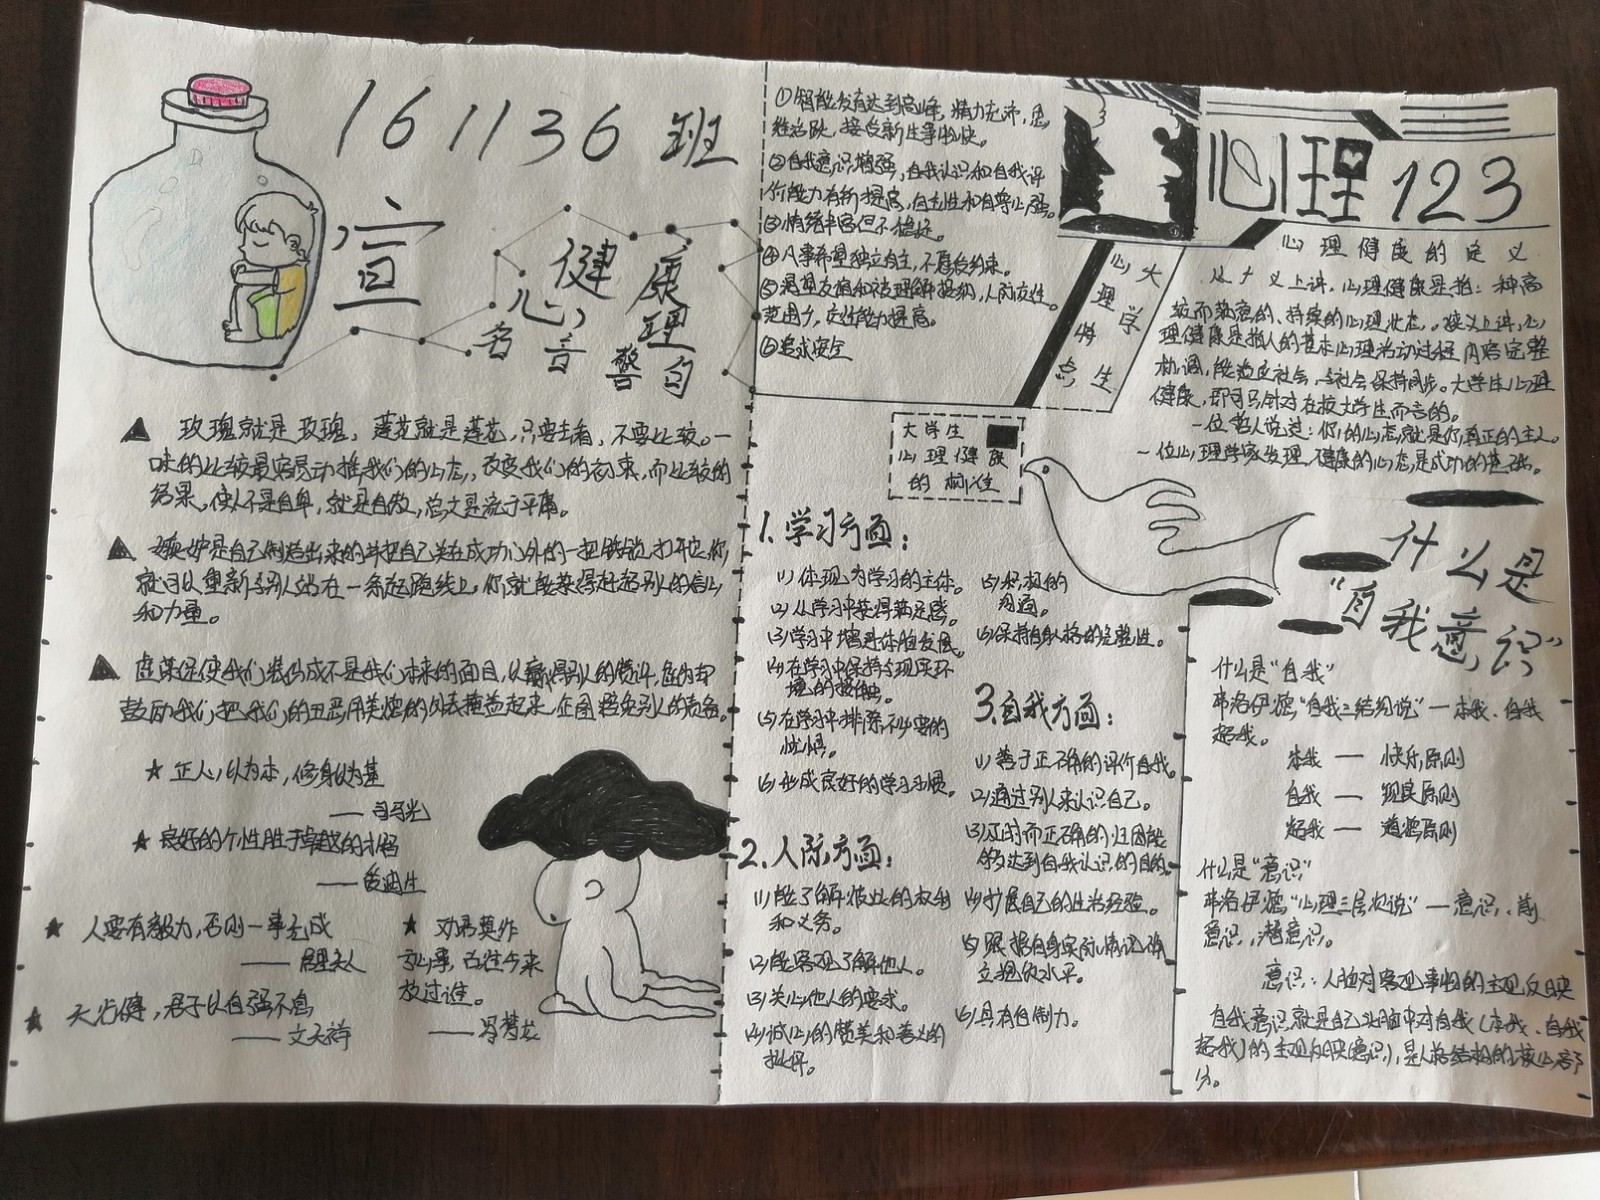 161136班
宣
健康
心理
名言警句
▲ 玫瑰就是玫瑰，莲花就是莲花，只要去看，不要比较。一
味的比较最容易动摇我们的心态，改变我们的初衷，而比较的
结果，使人不是自卑，就是自傲，总之是流于平庸。
▲ 嫉妒是自己制造出来的并把自己关在成功门外的一把铁锁，打开它，你
就可以重新与别人站在一条起跑线上，你就能获得赶超别人的信心
和力量。
▲ 虚荣促使我们装扮成不是我们本来的面目，以赢得别人的赞许，虚伪却
鼓励我们把我们的丑恶用美德的外表掩盖起来，企图避免别人的责备。
★ 正人心以为本，修身以为基
——司马光
★ 良好的个性胜于卓越的才智
——爱迪生
★ 人要有毅力，否则一事无成
——居里夫人
★ 天行健，君子以自强不息
——文天祥
★ 劝君莫作
亏心事，古往今来
放过谁。
——冯梦龙
①智能发育达到高峰，精力充沛，思
维活跃，接受新生事物快。
②自我意识增强，自我认识和自我评
价能力有所提高，自主性和自尊心强。
③情绪丰富但不稳定。
④凡事希望独立自主，不愿受约束。
⑤渴望友谊和被理解接纳，人际交往
范围广，交往能力提高。
⑥追求安全
大学生
心理特点
大学生
心理健康
的标准
1.学习方面：
(1)体现为学习的主体。
(2)从学习中获得满足感。
(3)学习中增进体脑发展。
(4)在学习中保持与现实环
境的接触。
(5)在学习中排除不必要的
忧惧。
(6)形成良好的学习习惯。
2.人际方面：
(1)能了解彼此的权利
和义务。
(2)能客观了解他人。
(3)关心他人的要求。
(4)诚心的赞美和善意的
批评。
(5)积极的
沟通。
(6)保持自身人格的完整性。
3.自我方面：
(1)善于正确的评价自我。
(2)通过别人来认识自己。
(3)及时而正确的归因能
够达到自我认识的目的。
(4)扩展自己的生活经验。
(5)根据自身实际情况确
立抱负水平。
(6)具有自制力。
心理123
心理健康的定义
从广义上讲，心理健康是指一种高
效而满意的、持续的心理状态。狭义上讲，心
理健康是指人的基本心理活动过程内容完整
协调，能适应社会，与社会保持同步。大学生心理
健康，即可马针对在校大学生而言的。
一位哲人说过：你的心态就是你真正的主人。
一位心理学家发现，健康的心态是成功的基础。
什么是
“自我意识”
什么是“自我”
弗洛伊德“自我三结构说”—本我、自我
超我。
本我 — 快乐原则
自我 — 现实原则
超我 — 道德原则
什么是“意识”
弗洛伊德“心理三层次说”—意识、前
意识、潜意识。
意识：人脑对客观事物的主观反映
自我意识就是自己头脑中对自我（本我、自我
超我）的主观反映(意识)，是人格结构的核心部
分。